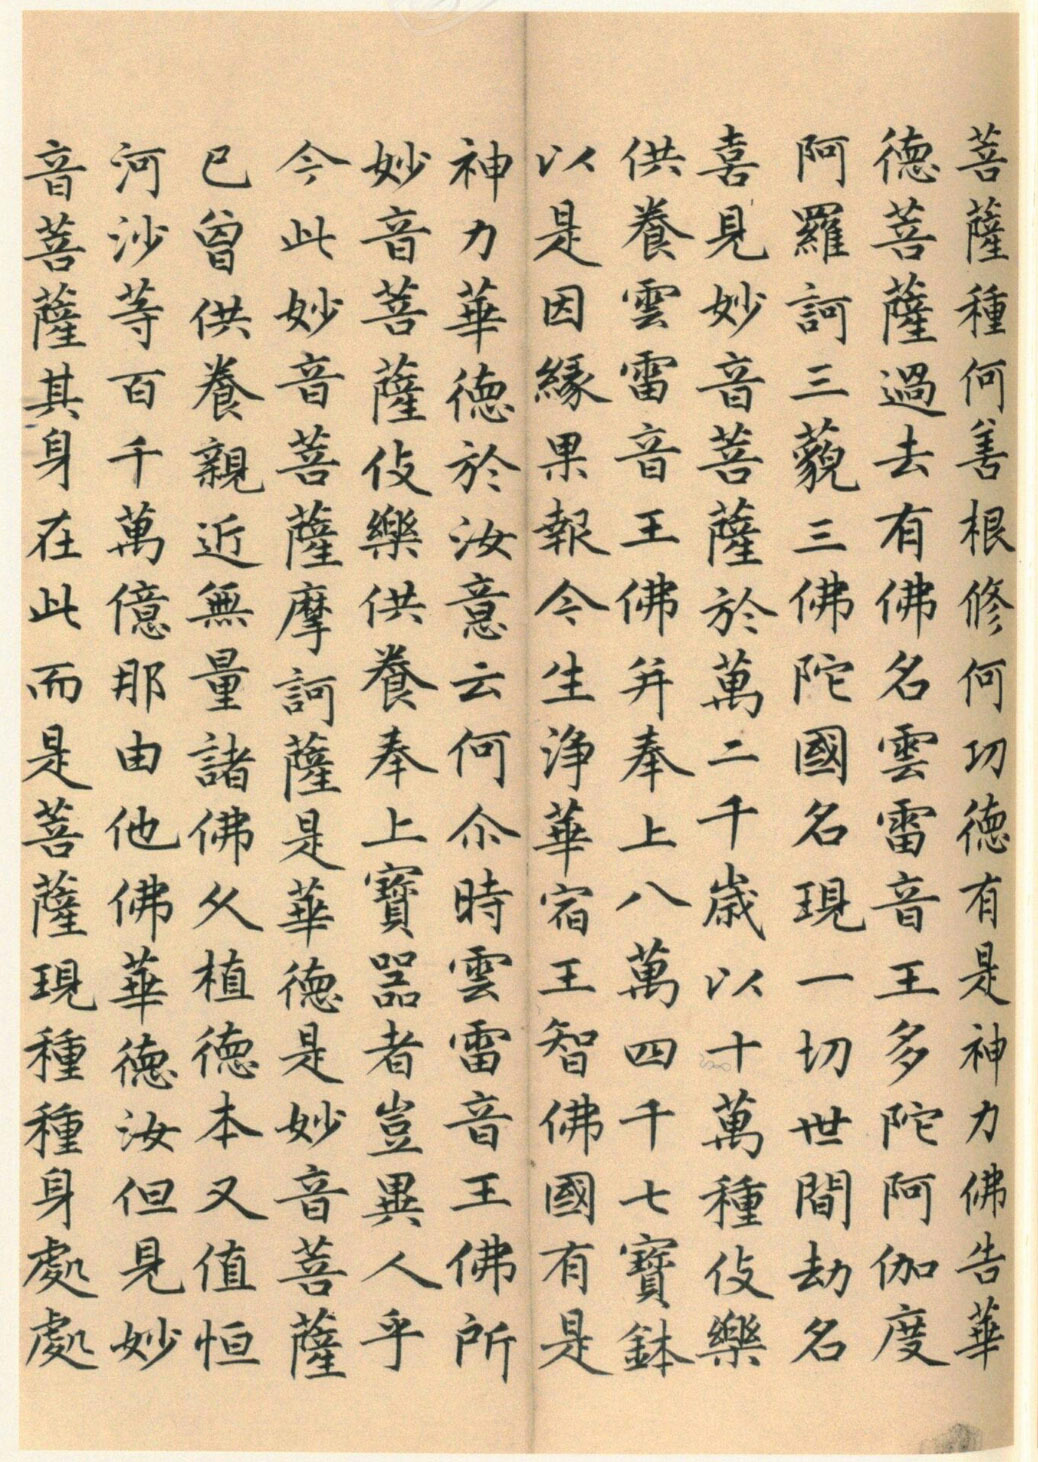 菩薩種何善根修何功德有是神力佛告華
德菩薩過去有佛名雲雷音王多陀阿伽度
阿羅訶三藐三佛陀國名現一切世間劫名
喜見妙音菩薩於萬二千歲以十萬種伎樂
供養雲雷音王佛并奉上八萬四千七寶鉢
以是因緣果報今生淨華宿王智佛國有是
神力華德於汝意云何尒時雲雷音王佛所
妙音菩薩伎樂供養奉上寶器者豈異人乎
今此妙音菩薩摩訶薩是華德是妙音菩薩
已曾供養親近無量諸佛久植德本又值恒
河沙等百千萬億那由他佛華德汝但見妙
音菩薩其身在此而是菩薩現種種身處處